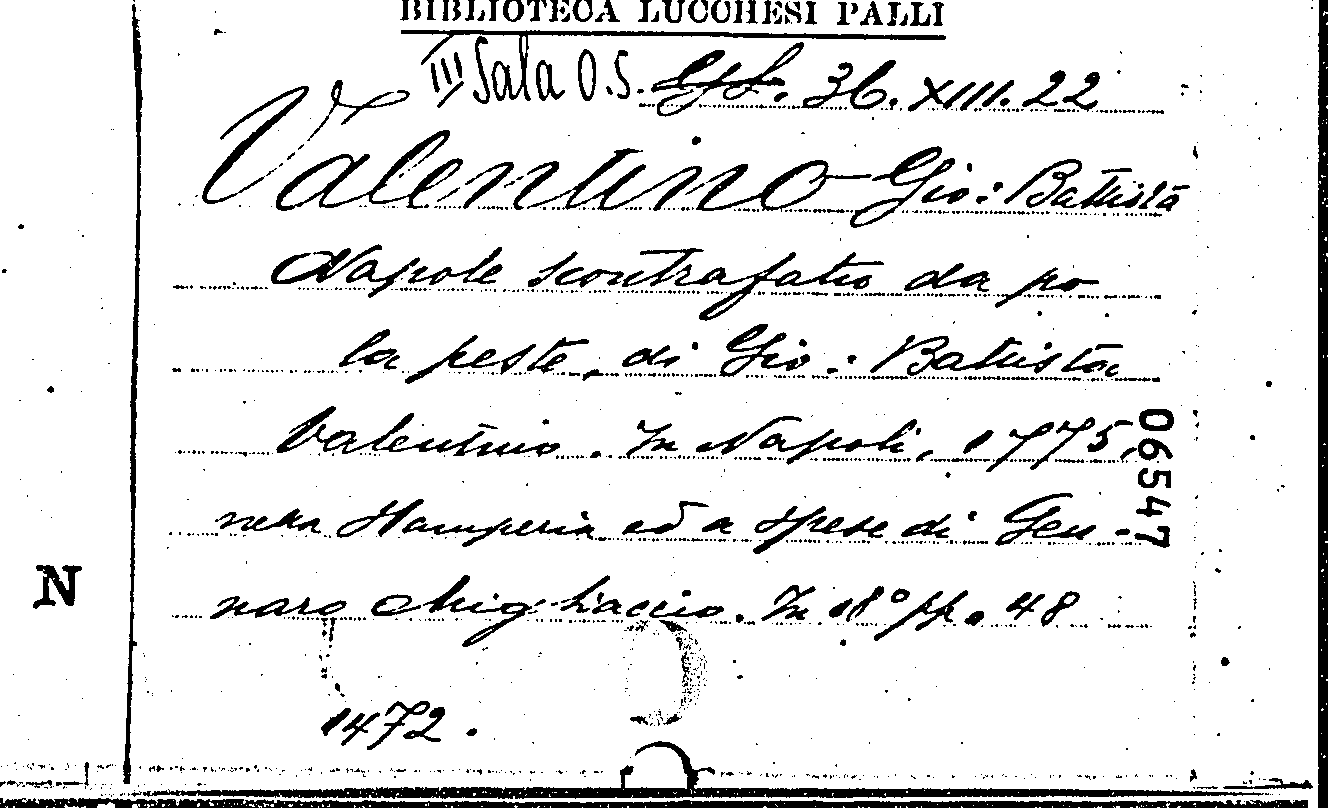 BIBLIOTECA LUCCHESI PALLI
III Sala O.S. 36. XIII. 22
Valentino Gio: Battista
Napole scontrafatto da po
la peste, di Gio: Battista
Valentino. In Napoli, 1775,
nella Stamperia ed a spese di Gen-
naro Migliaccio. In 18° pp. 48
1472.
06547
N